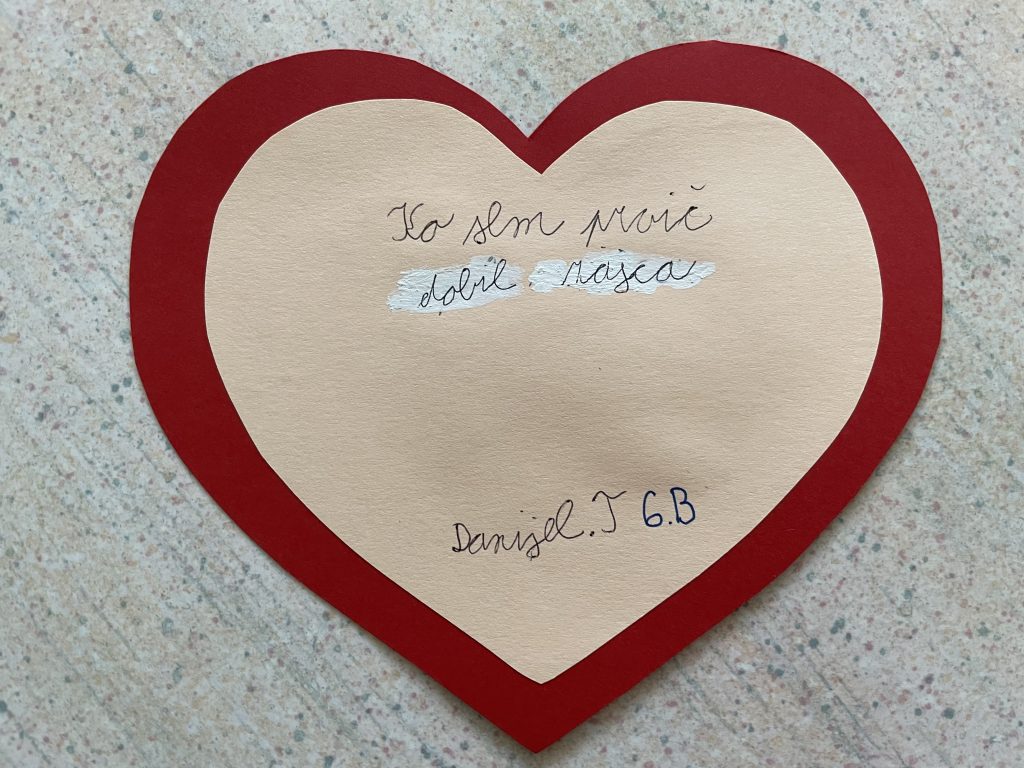 Ko sem prvič
dobil zajca
Danijel.T 6.B